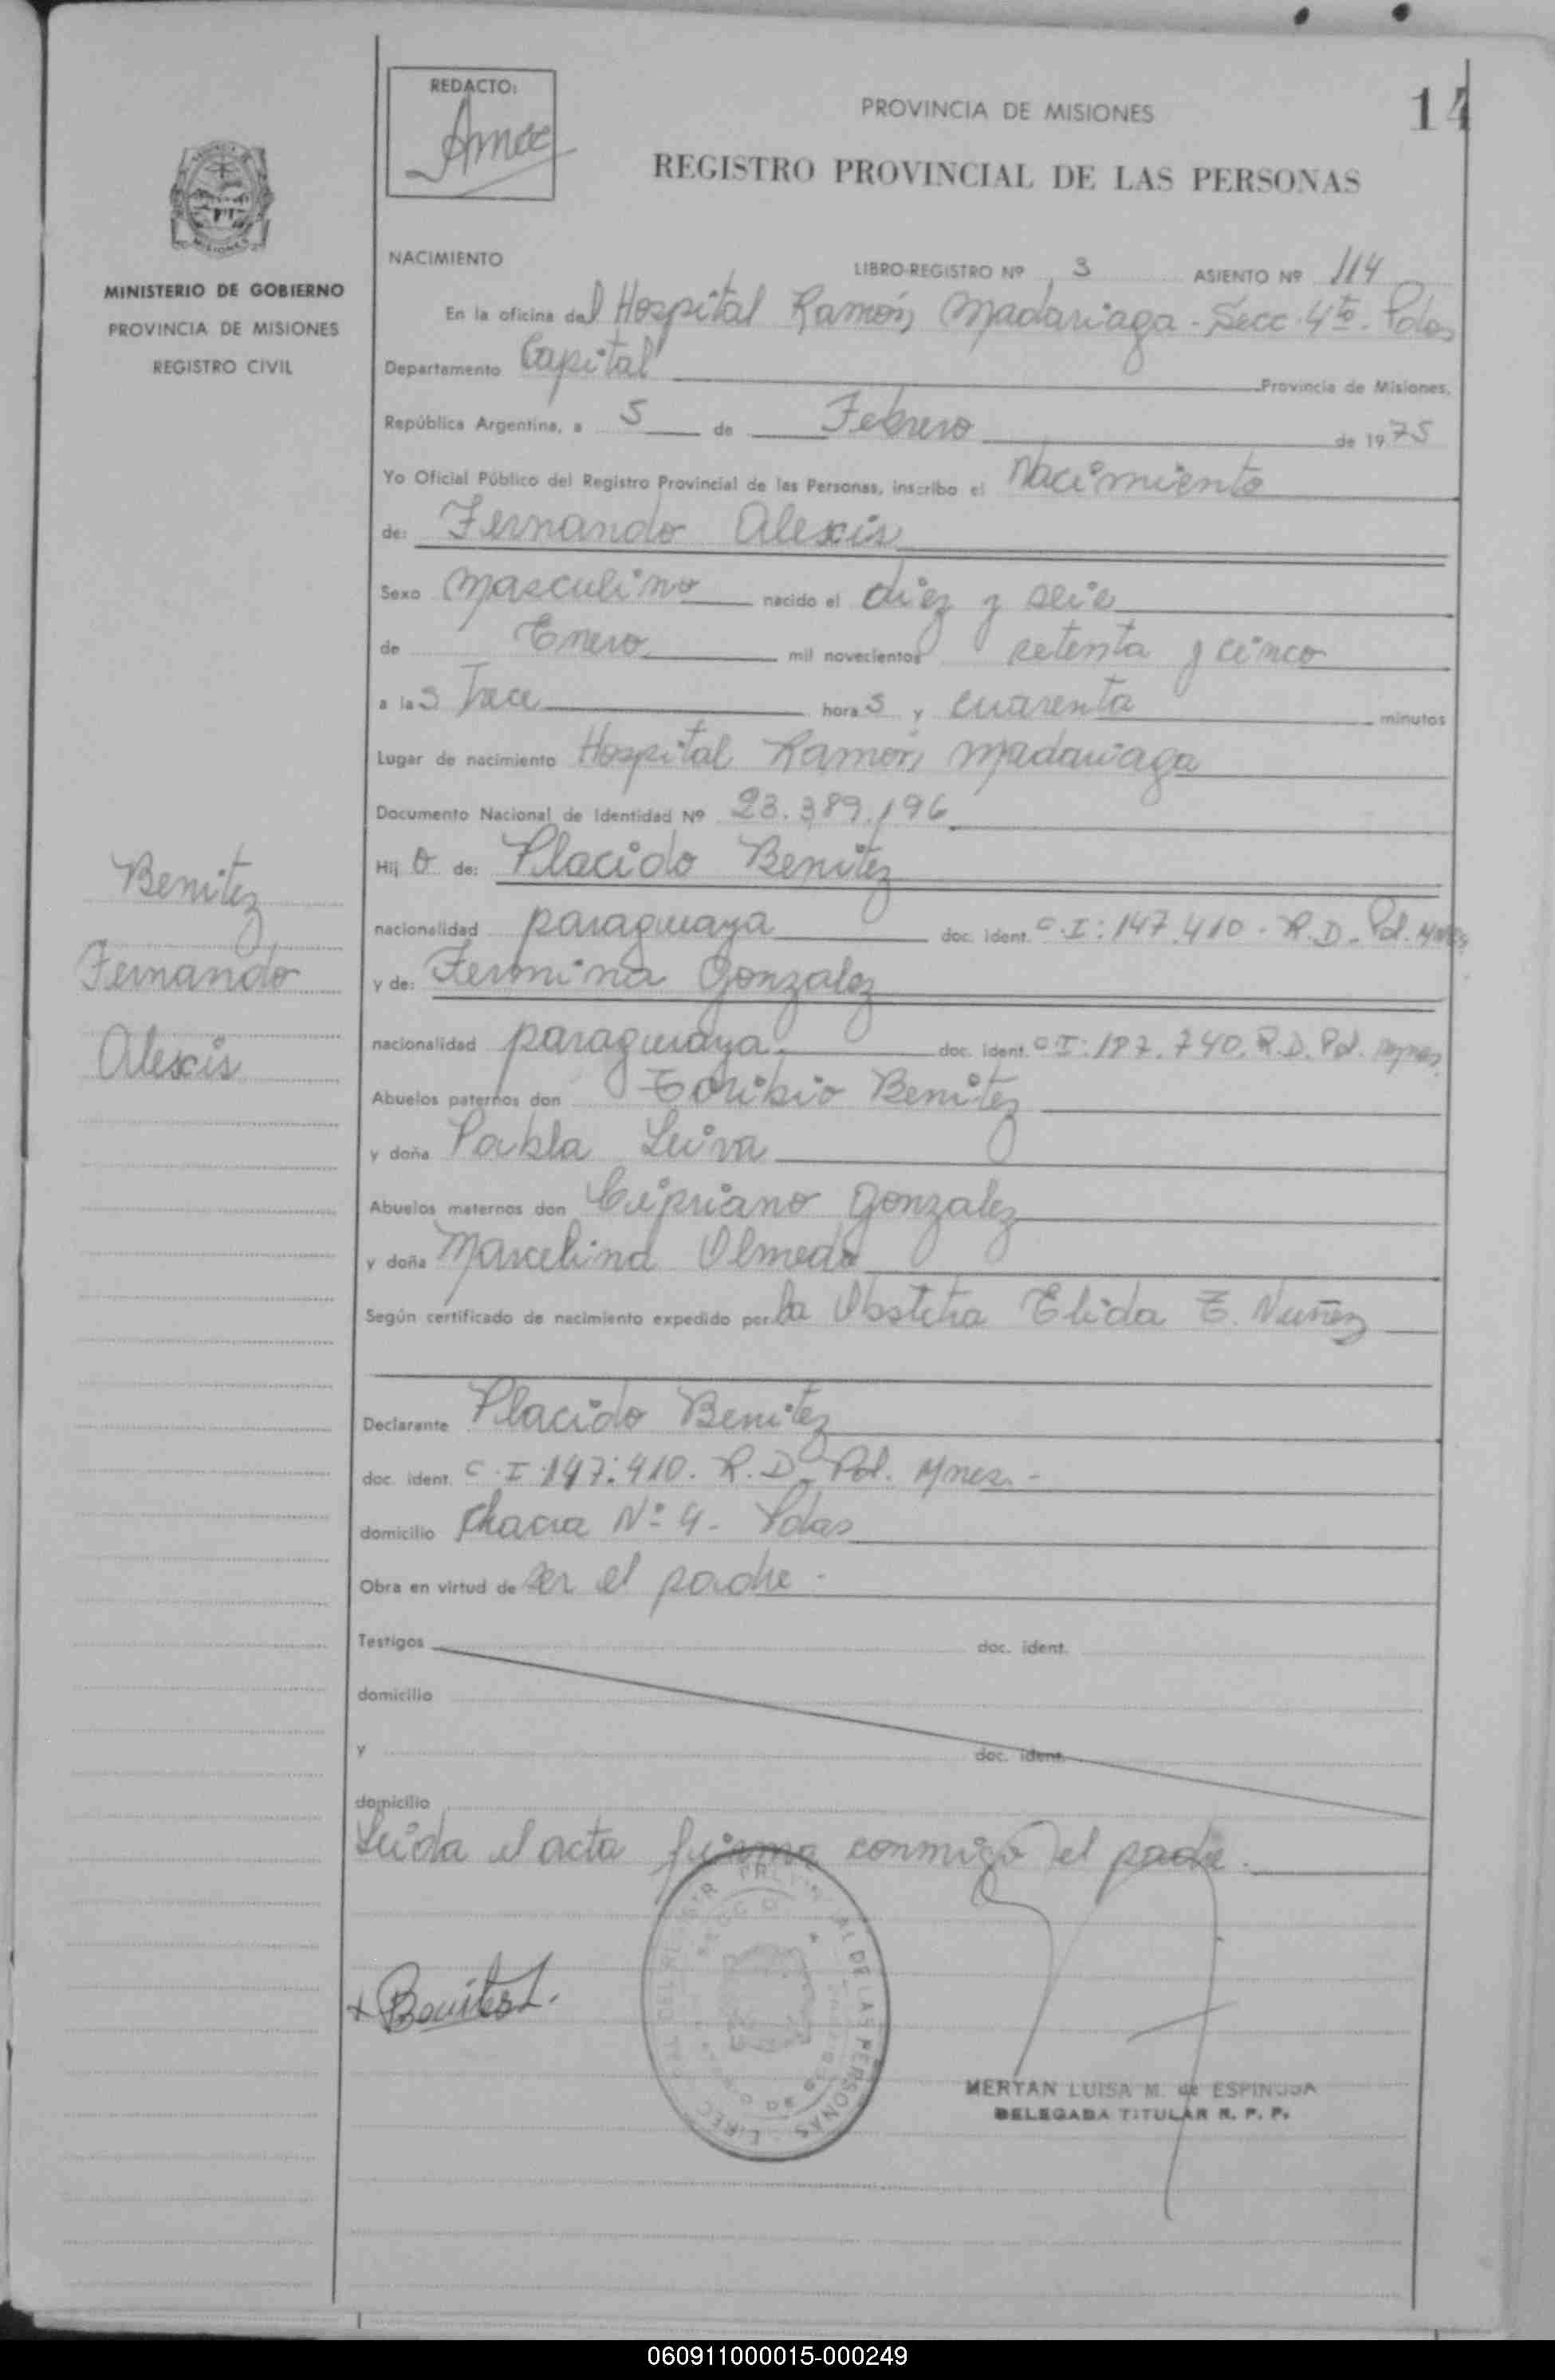 REDACTO:
PROVINCIA DE MISIONES
14
REGISTRO PROVINCIAL DE LAS PERSONAS
MISIONES
MINISTERIO DE GOBIERNO
PROVINCIA DE MISIONES
REGISTRO CIVIL
NACIMIENTO
LIBRO-REGISTRO Nº 3 ASIENTO Nº 114
En la oficina del Hospital Ramón Madariaga - Secc. 4ta. Pdas
Departamento Capital Provincia de Misiones.
República Argentina, a 5 de Febrero de 1975
Yo Oficial Público del Registro Provincial de las Personas, inscribo el Nacimiento
de: Fernando Alexis
Sexo Masculino nacido el diez y seis
de Enero mil novecientos setenta y cinco
a las Trece horas y cuarenta minutos
Lugar de nacimiento Hospital Ramón Madariaga
Documento Nacional de Identidad Nº 23.389.196
Hijo de: Placido Benitez
nacionalidad paraguaya doc. ident. C.I: 147.410 - R.D. Pol. Mnes
y de: Fermina Gonzalez
nacionalidad paraguaya doc. ident. C I: 187.740. R.D. Pol. Mnes
Abuelos paternos don Toribio Benitez
y doña Pabla Leiva
Abuelos maternos don Cipriano Gonzalez
y doña Marcelina Olmedo
Según certificado de nacimiento expedido por la Obstetra Elida E. Nuñez
Declarante Placido Benitez
doc. ident. C.I 147.410. R.D. Pol. Mnes. -
domicilio Chacra Nº 4. Pdas
Obra en virtud de ser el padre.
Testigos doc. ident.
domicilio
y doc. ident.
domicilio
Leida el acta firma conmigo el padre.
Benitez
Fernando
Alexis
DE LAS PERSONAS
MERTAN LUISA M. de ESPINOSA
DELEGADA TITULAR R. P. P.
060911000015-000249